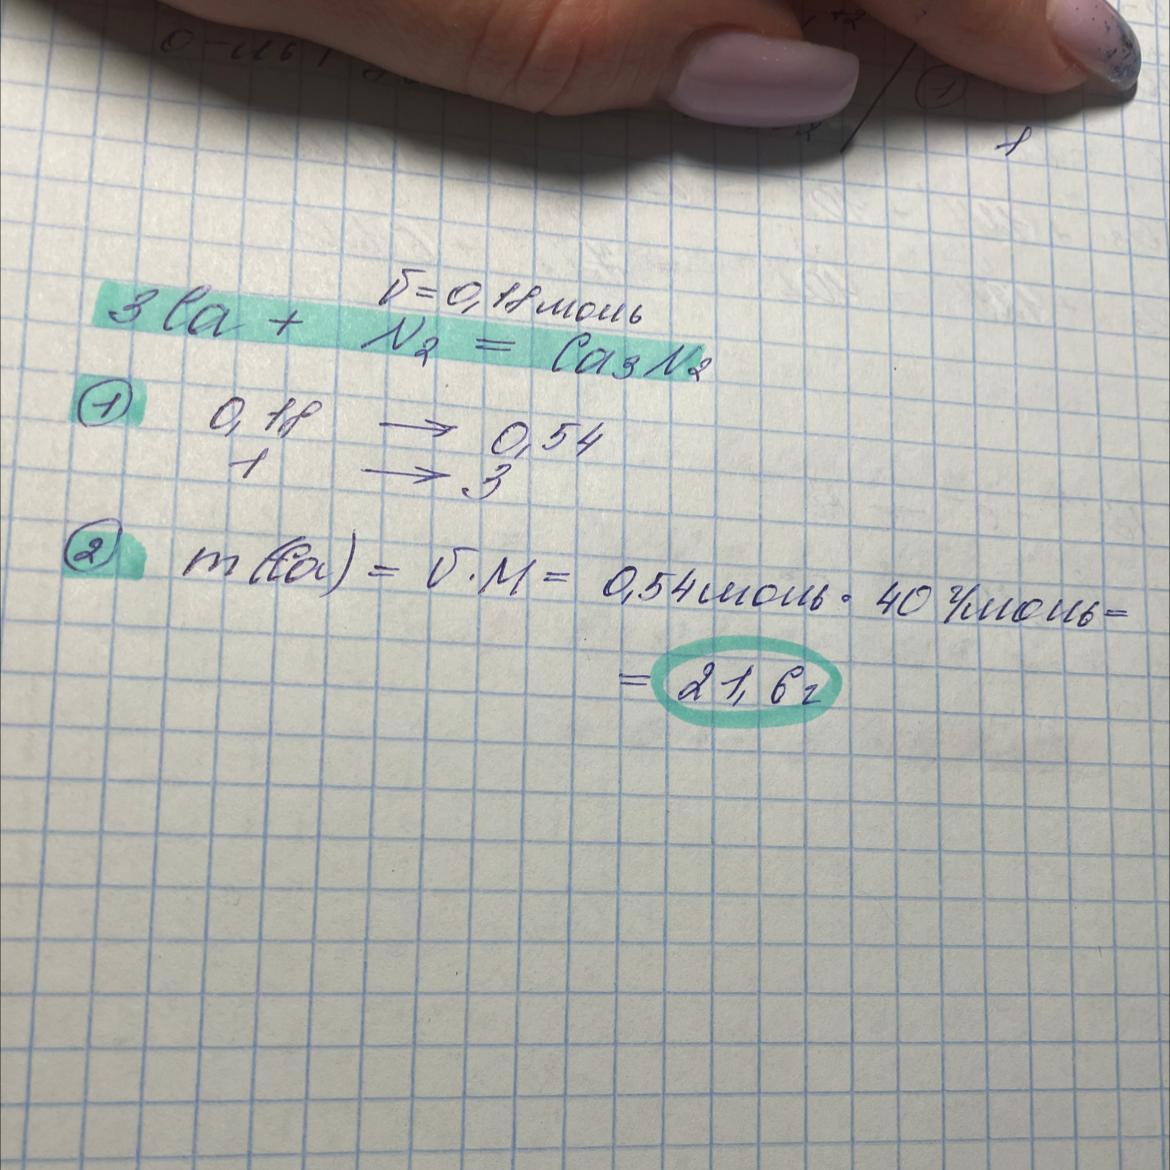 ν=0,18моль
3Ca + N2 = Ca3N2
① 0,18 → 0,54
1 → 3
② m(Ca) = ν·M = 0,54моль · 40 г/моль=
= 21,6г